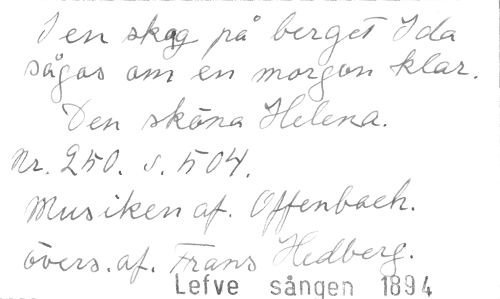 I en skog på berget Ida
sågos om en morgon klar.
Den sköna Helena.
Nr. 250. s. 504.
Musiken af. Offenbach.
övers. af. Frans Hedberg.
Lefve sången 1894